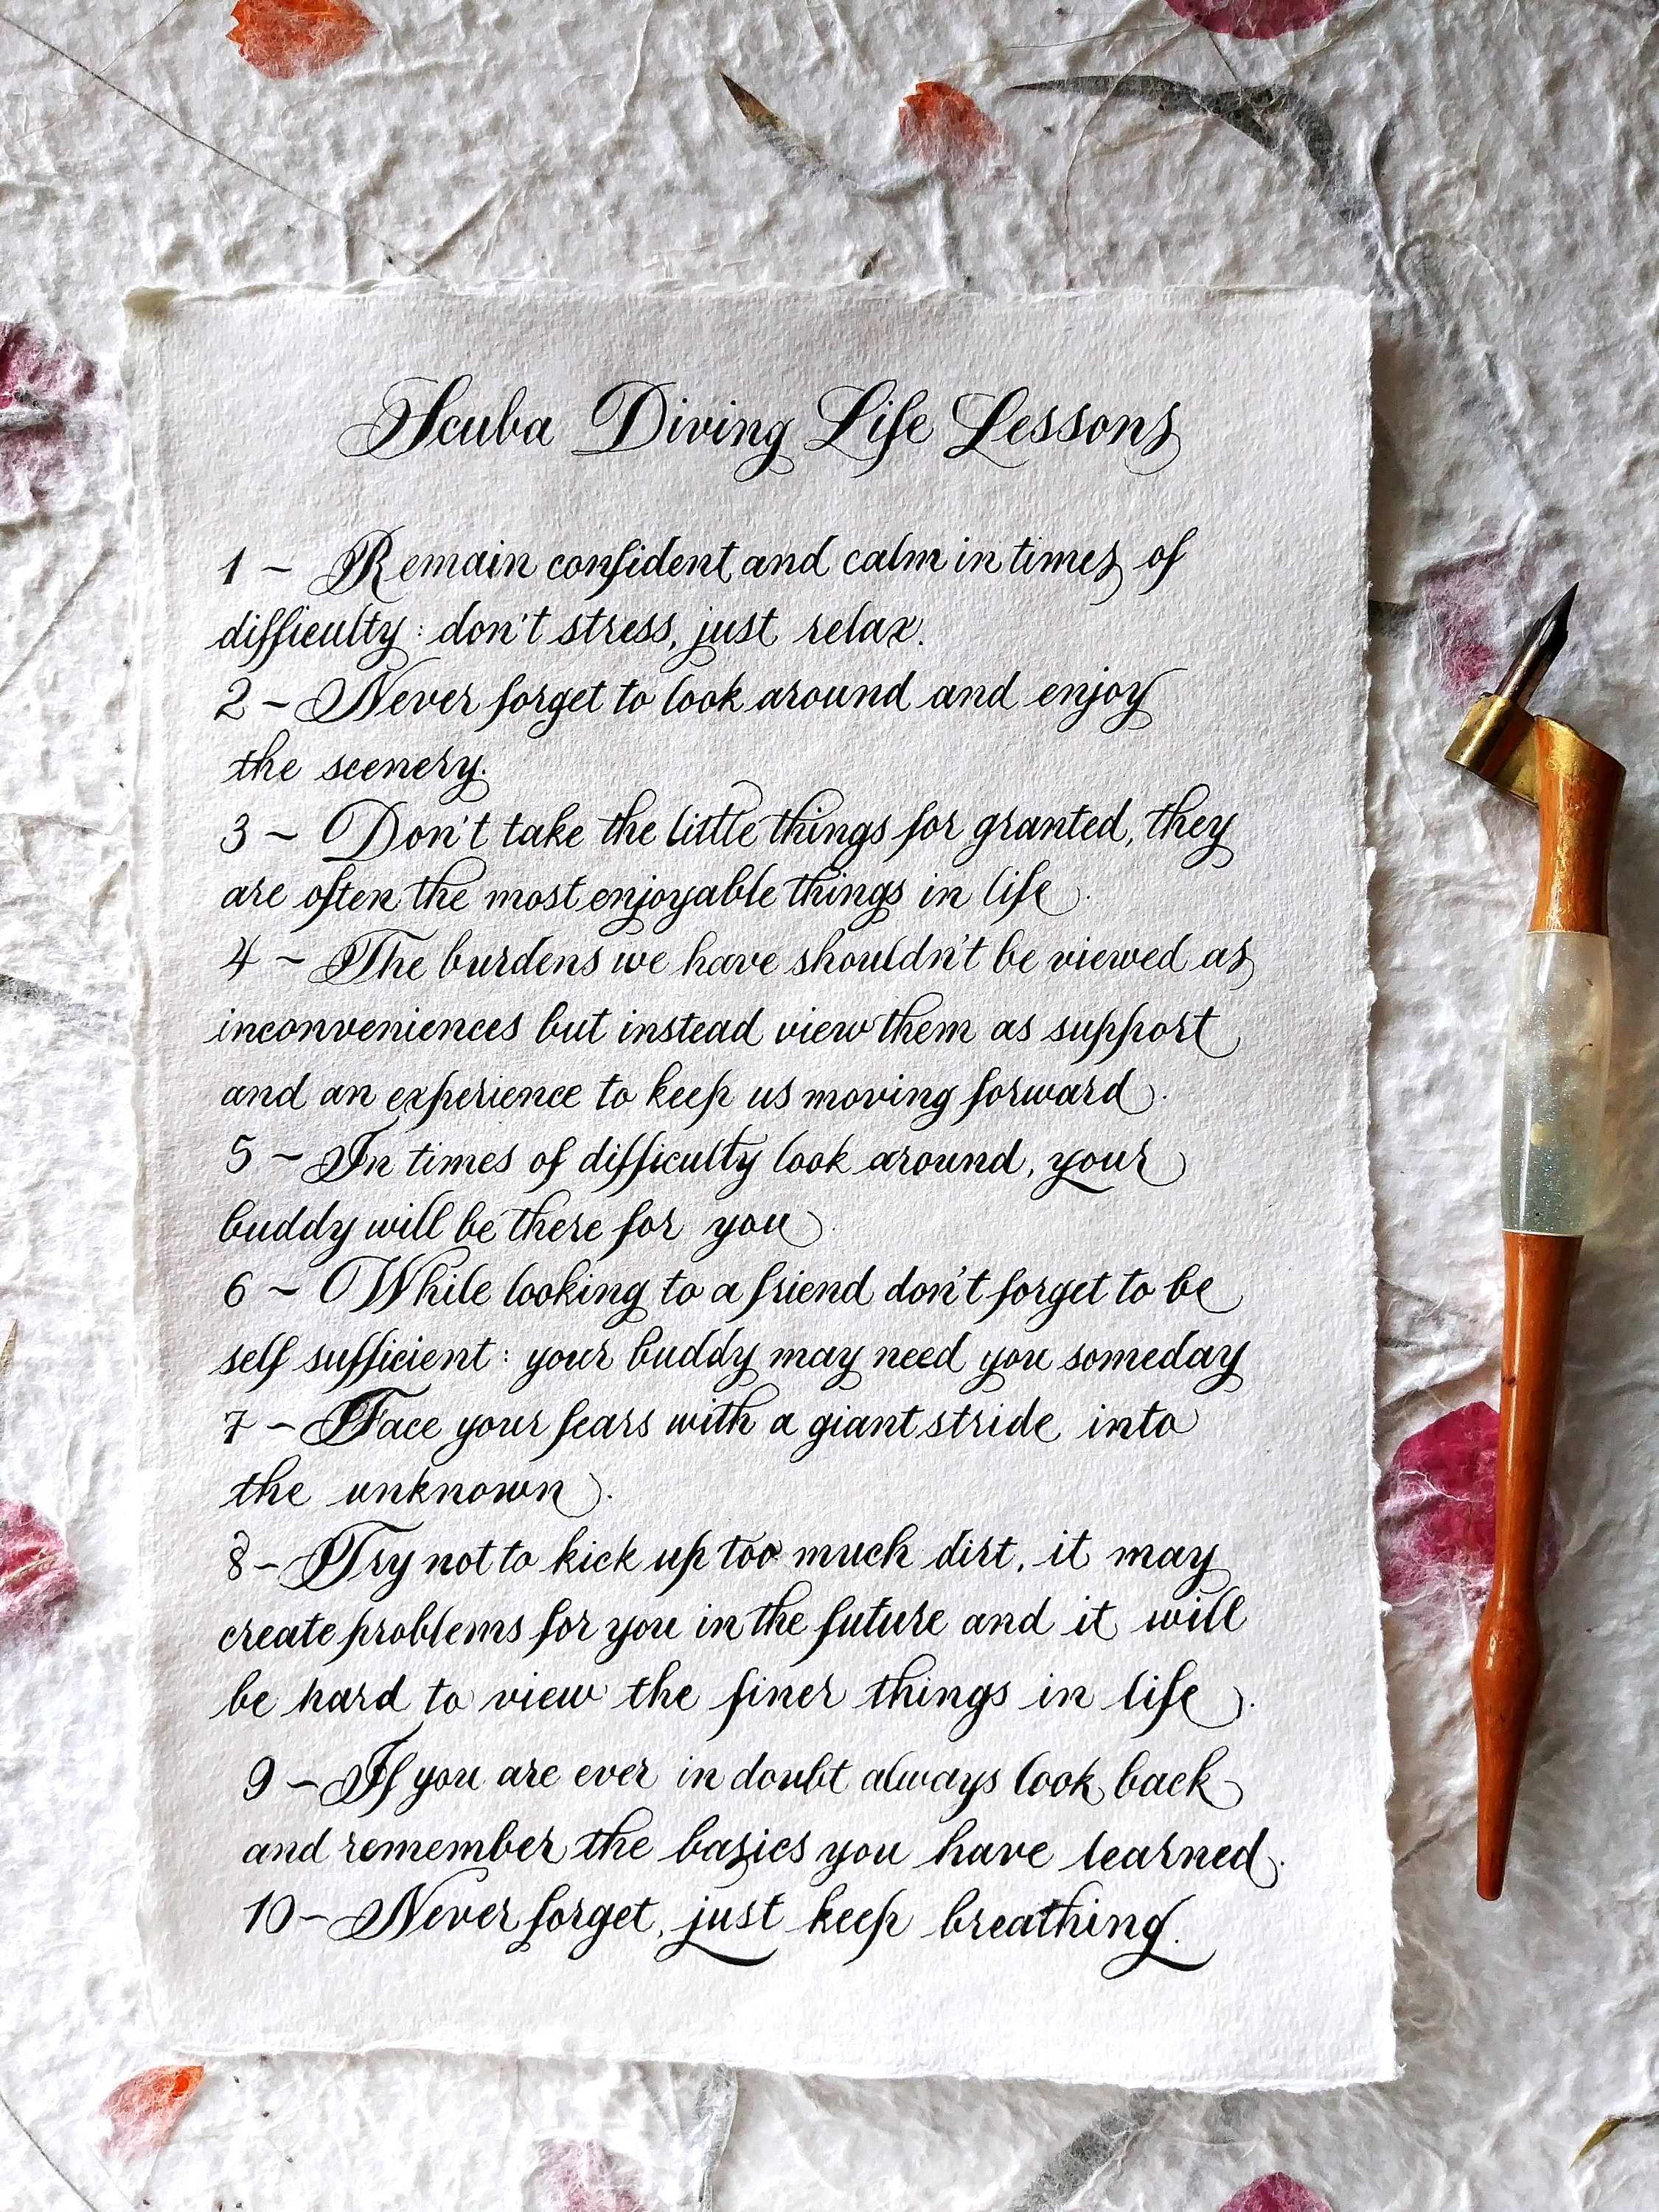 Scuba Diving Life Lessons
1 ~ Remain confident and calm in times of
difficulty : don't stress, just relax.
2 ~ Never forget to look around and enjoy
the scenery.
3 ~ Don't take the little things for granted, they
are often the most enjoyable things in life.
4 ~ The burdens we have shouldn't be viewed as
inconveniences but instead view them as support
and an experience to keep us moving forward.
5 ~ In times of difficulty look around, your
buddy will be there for you.
6 ~ While looking to a friend don't forget to be
self sufficient : your buddy may need you someday
7 ~ Face your fears with a giant stride into
the unknown.
8 ~ Try not to kick up too much dirt, it may
create problems for you in the future and it will
be hard to view the finer things in life.
9 ~ If you are ever in doubt always look back
and remember the basics you have learned.
10 ~ Never forget, just keep breathing.